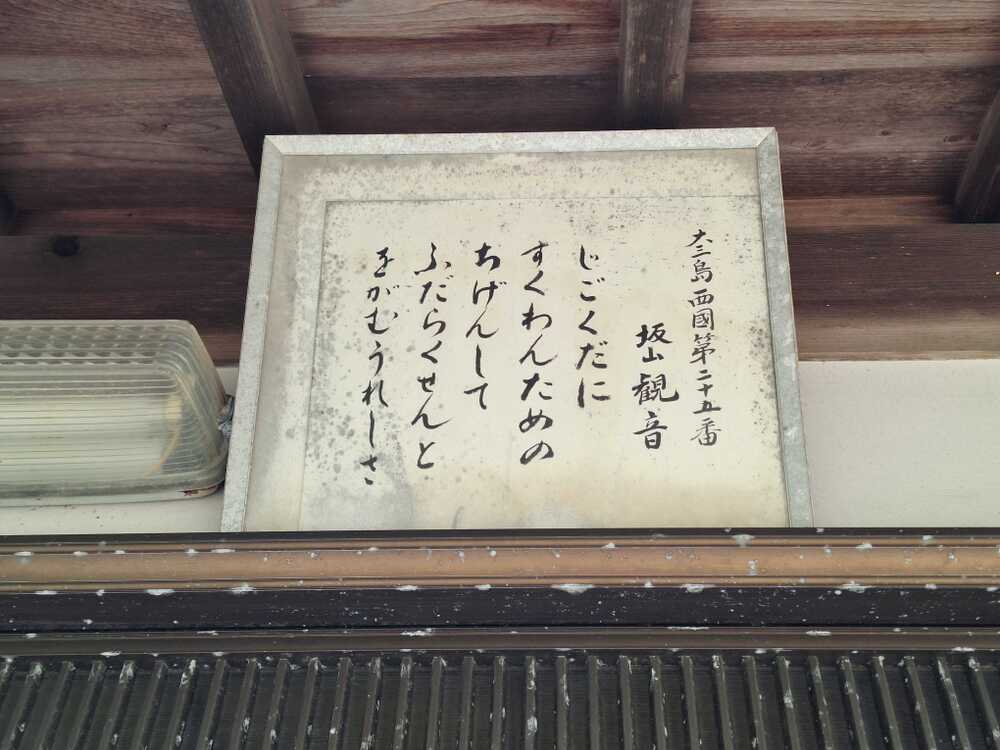 大三島西國第二十五番
坂山観音
じごくだに
すくわんための
ちげんして
ふだらくせんと
をがむうれしさ